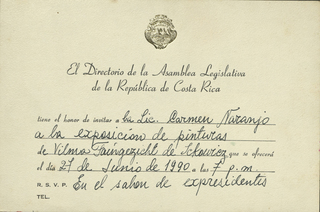 El Directorio de la Asamblea Legislativa
de la República de Costa Rica
tiene el honor de invitar a la Lic. Carmen Naranjo
a la exposición de pinturas
de Vilma Faingezicht de Itkowicz que se ofrecerá
el día 27 de Junio de 1990 a las 7 p.m
R. S. V. P. En el salon de expresidentes
TEL.